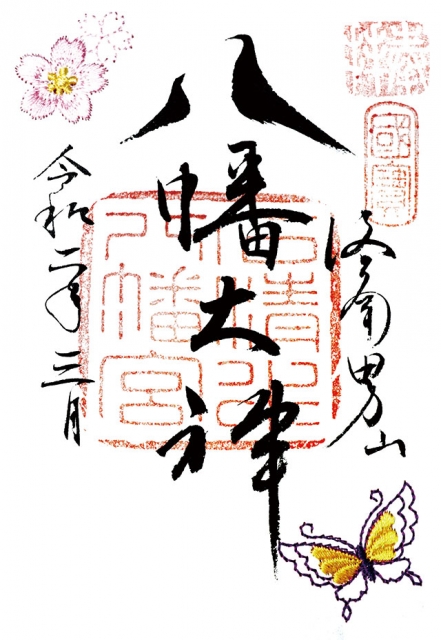 國寶
男山
八幡大神
石清水八幡宮
令和二年三月